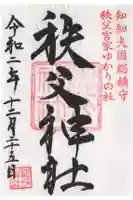 知知夫国総鎮守
秩父宮家ゆかりの社
秩父神社
令和二年十二月二十五日